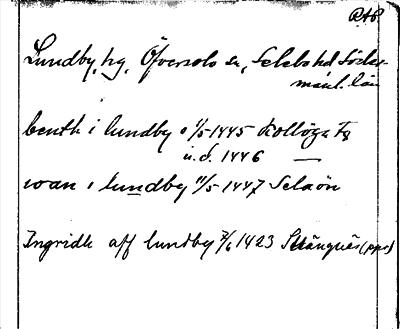 RAP
Lundby, hg, Överselö sn, Selebo hd Söder-
manl. län
benth i lundby 1/5 1445 Kollöga Fg
u.d. 1446 —
ioan i lundby 11/5 1447 Selaön
Ingridh aff lundby 7/6 1423 Strängnäs (ppr)